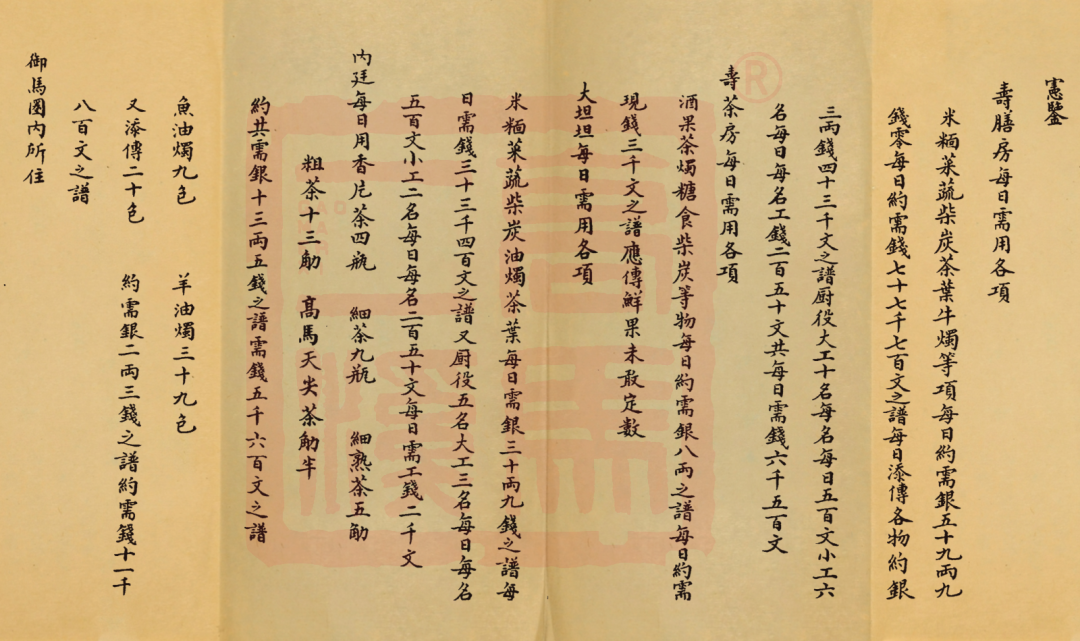 憲鑒
壽膳房每日需用各項
米糆菜蔬柴炭茶葉牛燭等項每日約需銀五十九兩九
錢零每日約需錢七十七千七百文之譜每日添傳各物約銀
三兩錢四十三千文之譜厨役大工十名每名每日五百文小工六
名每日每名工錢二百五十文共每日需錢六千五百文
壽茶房每日需用各項
酒果茶燭糖食柴炭等物每日約需銀八兩之譜每日約需
現錢三千文之譜應傳鮮果未敢定數
大坦坦每日需用各項
米糆菜蔬柴炭油燭茶葉每日需銀三十兩九錢之譜每
日需錢三十三千四百文之譜又厨役五名大工三名每日每名
五百文小工二名每日每名二百五十文每日需工錢二千文
內廷每日用香片茶四瓶 細茶九瓶 細熟茶五觔
粗茶十三觔 高馬天尖茶觔半
約共需銀十三兩五錢之譜需錢五千六百文之譜
魚油燭九包 羊油燭三十九包
又添傳二十包 約需銀二兩三錢之譜約需錢十一千
八百文之譜
御馬圈內所住
®